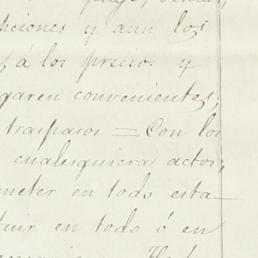 pciones y aun los
, á los precios y
garen convenientes,
traspasos = Con los
cualesquiera actos,
meter en todo esta-
tuir en todo ó en